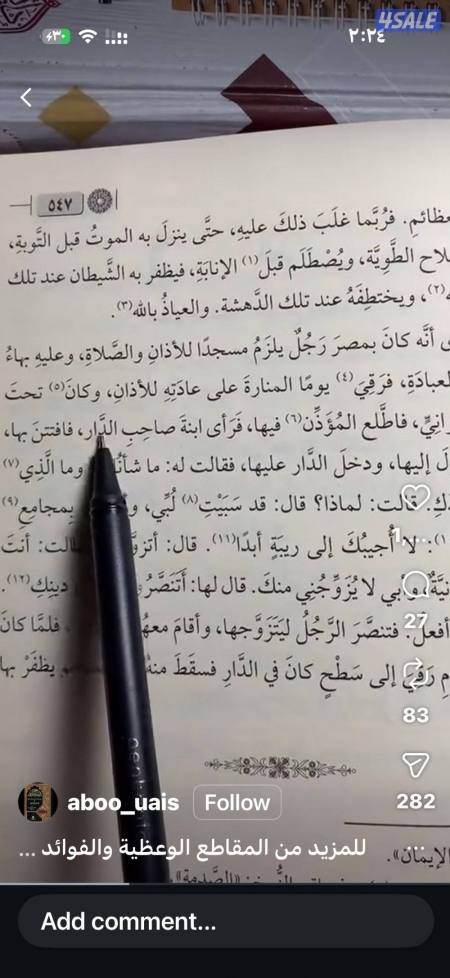 4SALE
٣٠
٢:٢٤
٥٤٧
عظائمِ. فرُبَّما غلَبَ ذلكَ عليهِ، حتَّى ينزلَ به الموتُ قبل التَّوبةِ،
لاح الطَّوِيَّة، ويُصْطَلَم قبلَ(١) الإنابَةِ، فيظفر به الشَّيطان عند تلك
(٢)، ويختطِفَهُ عند تلك الدَّهشة. والعياذُ بالله(٣).
أنَّه كانَ بمصرَ رَجُلٌ يلزَمُ مسجدًا للأذانِ والصَّلاةِ، وعليهِ بهاءُ
لعبادَةِ، فرَقِيَ(٤) يومًا المنارةَ على عادَتِهِ للأذانِ، وكانَ(٥) تحتَ
رانيٍّ، فاطَّلع المُؤَذِّن(٦) فيها، فَرَأى ابنةَ صاحِبِ الدَّارِ، فافتتنَ بها،
لَ إليها، ودخلَ الدَّار عليها، فقالت له: ما شأنُ وما الَّذِي(٧)
قالت: لماذا؟ قال: قد سَبَيْتِ(٨) لُبِّي، بِمجامِعِ(٩)
: لا أُجيبُكَ إلى ريبَةٍ أبدًا(١١). قال: أتزوَّ الت: أنتَ
نيَّةٌ، وأبي لا يُزَوِّجُنِي منكَ. قال لها: أَتَنَصَّرُ دينِكِ(١٢).
أفعل. فتنصَّرَ الرَّجُلُ ليَتَزَوَّجها، وأقامَ معهُ، فلمَّا كانَ
رَقِيَ إلى سَطْحٍ كانَ في الدَّارِ فسقَطَ منهُ يظفَرْ بها
27
83
282
aboo_uais
Follow
للمزيد من المقاطع الوعظية والفوائد ...
الإيمان».
«الصَّدمة».
Add comment...